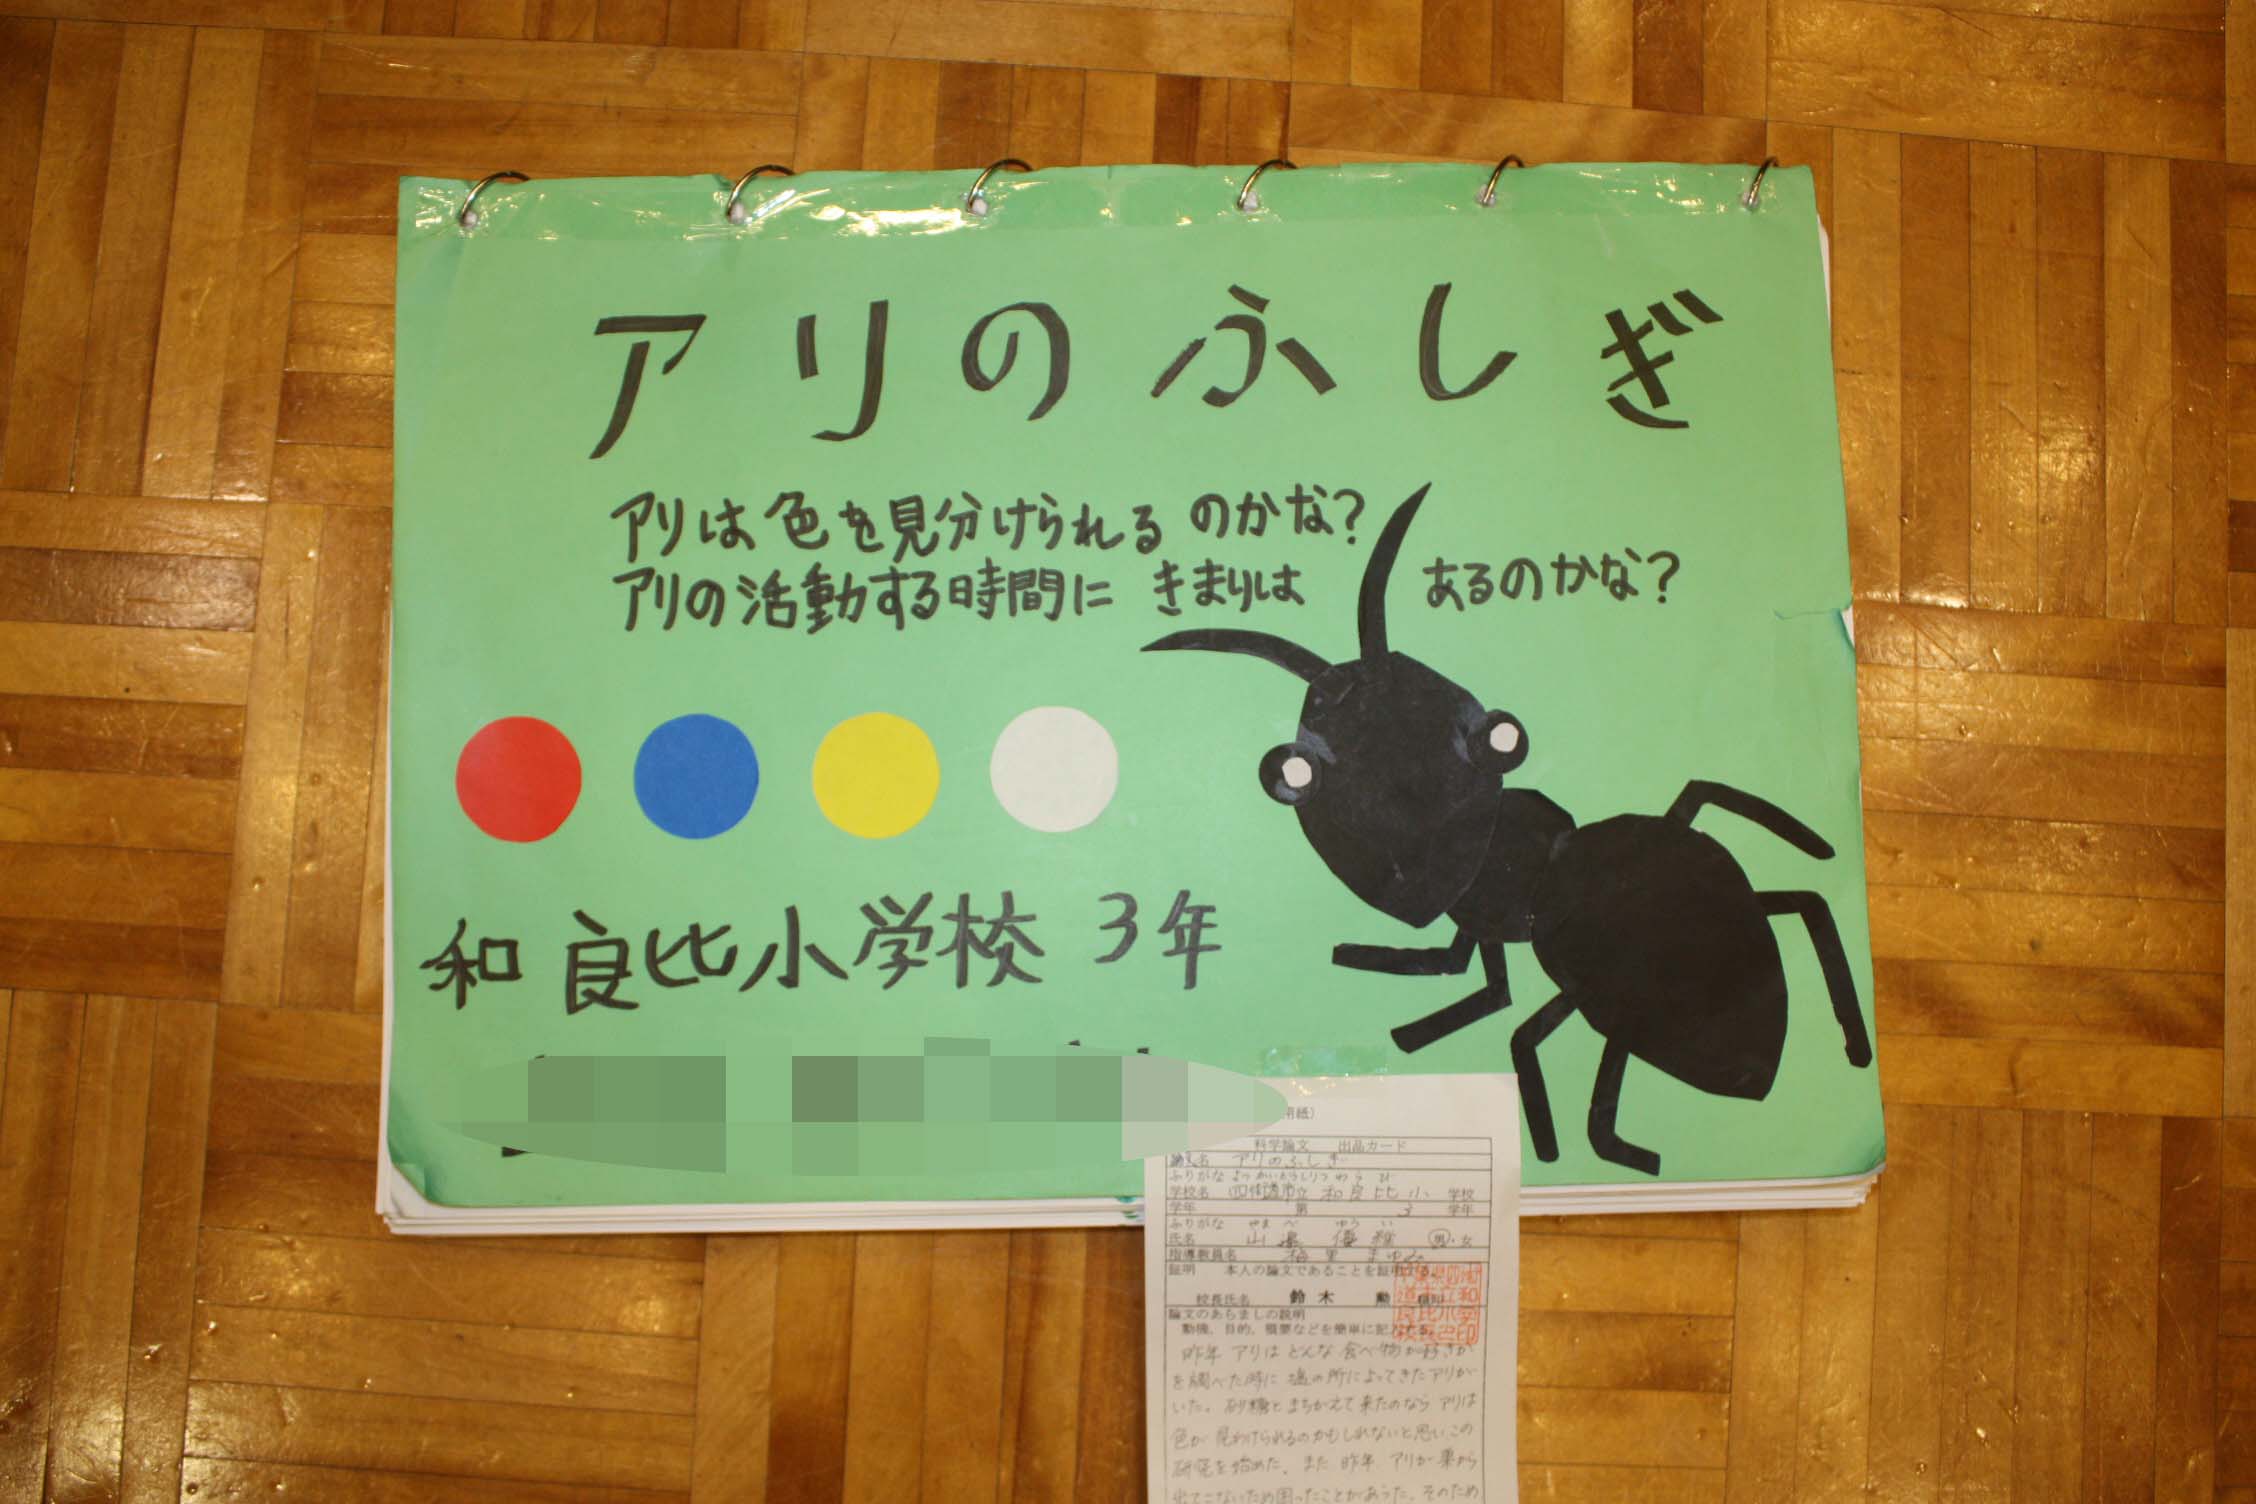 アリのふしぎ
アリは色を見分けられるのかな?
アリの活動する時間にきまりは あるのかな?
和良比小学校 3年
用紙)
科学論文 出品カード
論文名 アリのふしぎ
ふりがな よつかいどうしりつ わらび
学校名 四街道市立 和良比小 学校
学年 第 3 学年
ふりがな
氏名 男・女
指導教員名
証明 本人の論文であることを証明する。
校長氏名 鈴木 勲
論文のあらましの説明
動機、目的、概要などを簡単に記入する。
昨年 アリは どんな 食べ物が好きか
を調べた時に 塩の所によってきたアリが
いた。砂糖とまちがえて来たのなら アリは
色が 見わけられるのかもしれないと思い、この
研究を始めた。また 昨年 アリが 巣から
出てこないため困ったことがあった。そのため